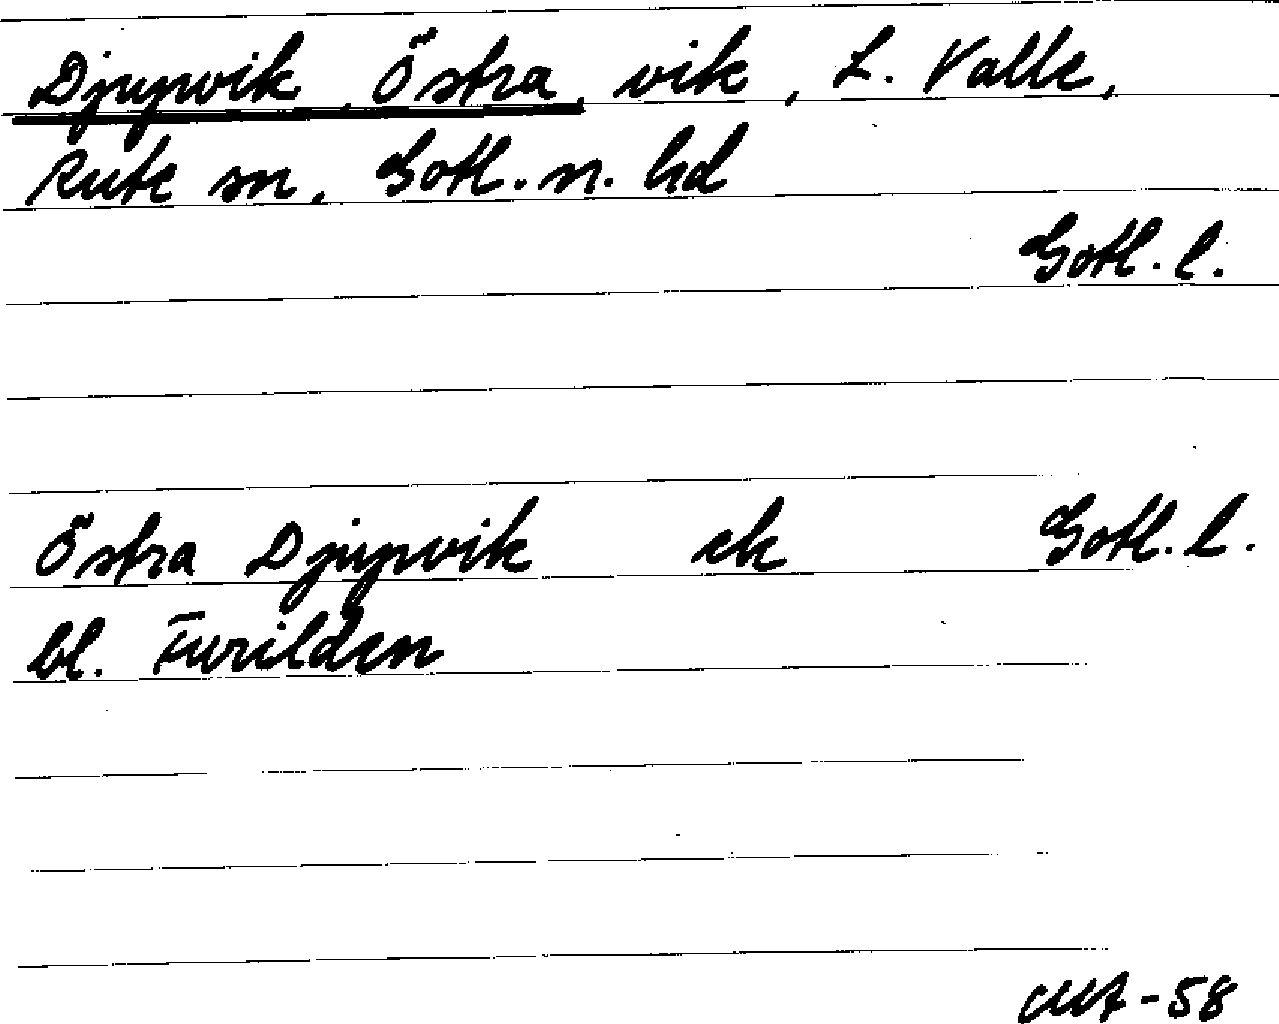 Djupvik, Östra, vik, L. Valle,
Rute sn, Gotl. n. hd
Gotl. l.
Östra Djupvik ek Gotl. l.
bl. Furilden
-58